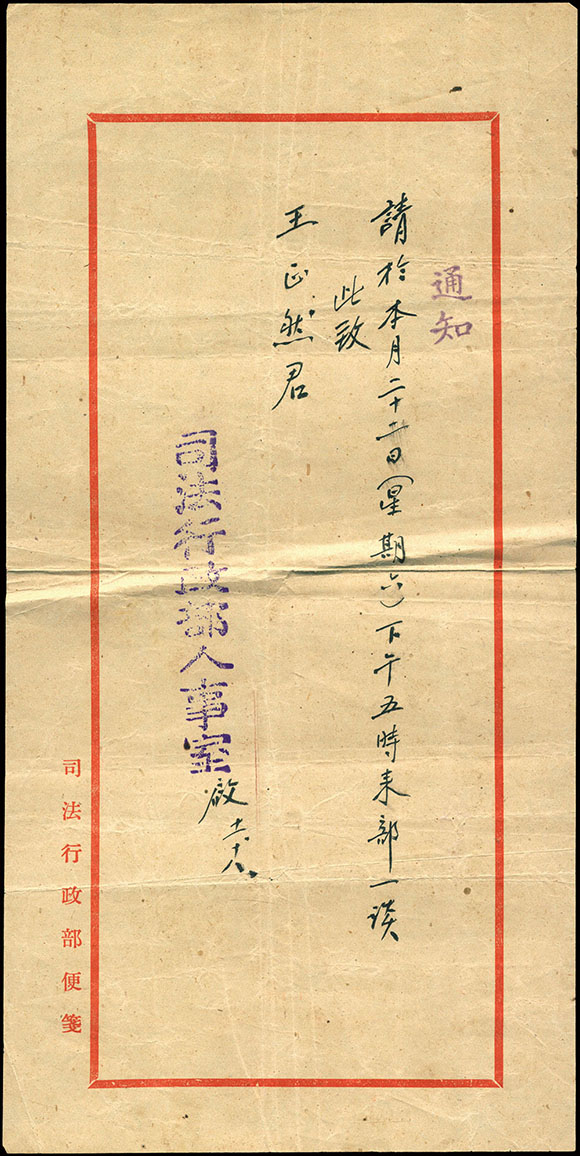 通知
請於本月二十二日（星期六）下午五時來部一談
此致
王正然君
司法行政部人事室 啟 十二.十八.
司法行政部便箋